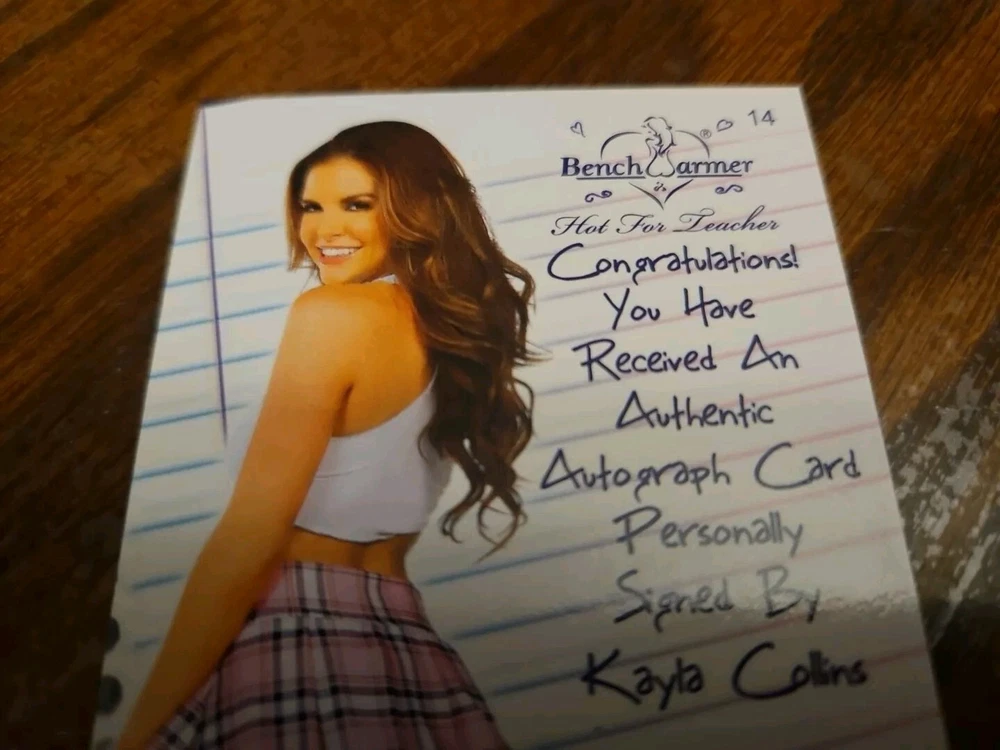 14
BenchWarmer ®
Hot For Teacher
Congratulations!
You Have
Received An
Authentic
Autograph Card
Personally
Signed By
Kayla Collins